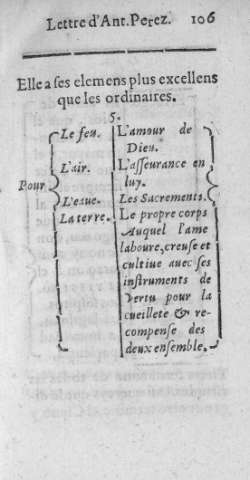 Lettre d'Ant. Perez. 106
Elle a ses elemens plus excellens
que les ordinaires.
5.
Le feu. L'amour de
Dieu.
L'air. L'asseurance en
Pour luy.
L'eaue. Les Sacrements.
La terre. Le propre corps
Auquel l'ame
laboure, creuse et
cultiue auec ses
instruments de
vertu pour la
cueillete & re-
compense des
deux ensemble,